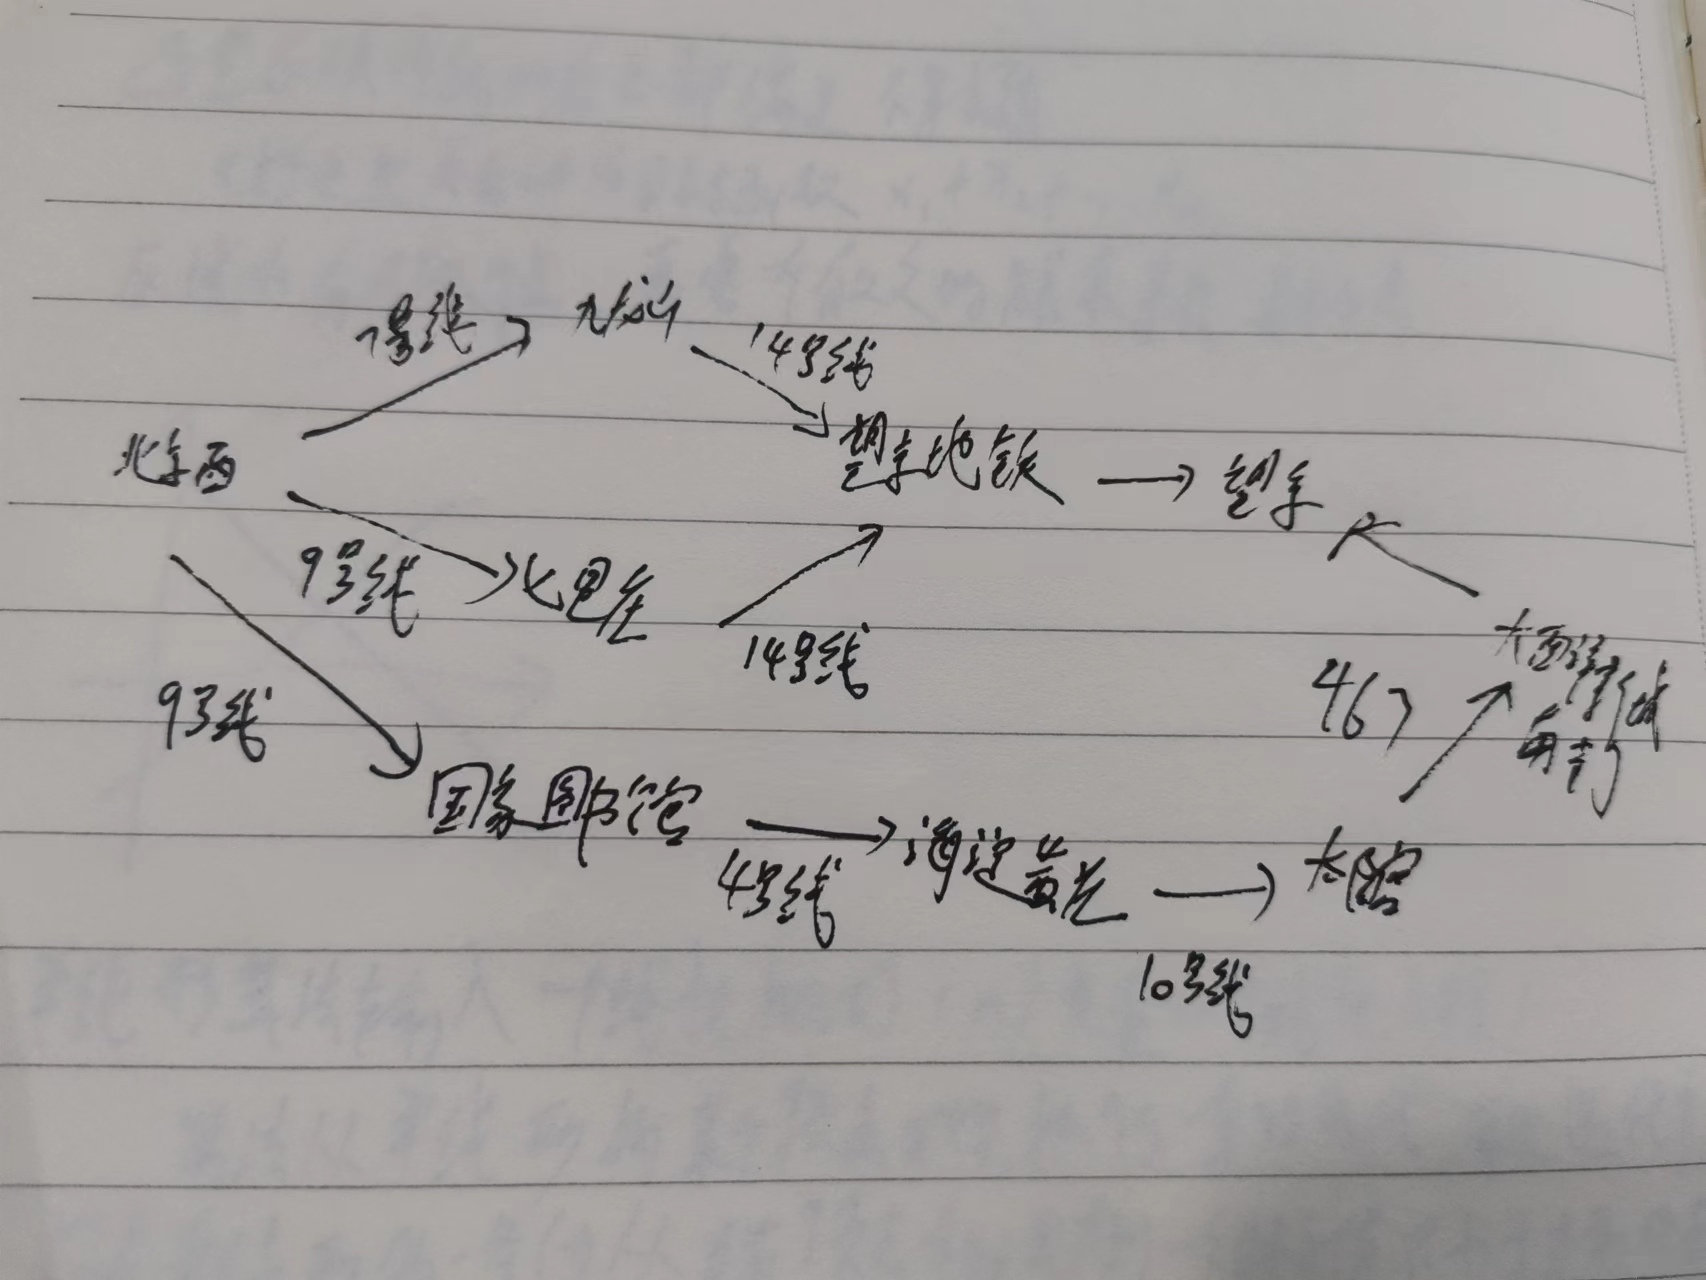 7号线
九龙山
14号线
北京西
望京地铁
望京
9号线
七里庄
14号线
9号线
大西洋新城
南门
467
国家图书馆
4号线
海淀黄庄
太阳宫
10号线